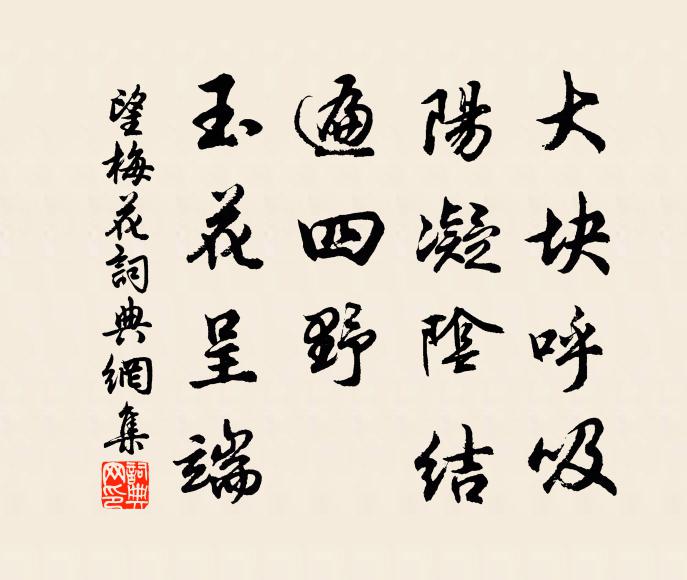 大块呼吸
陽凝陰結
遍四野
玉花呈端
望梅花詞典網集
詞典网印